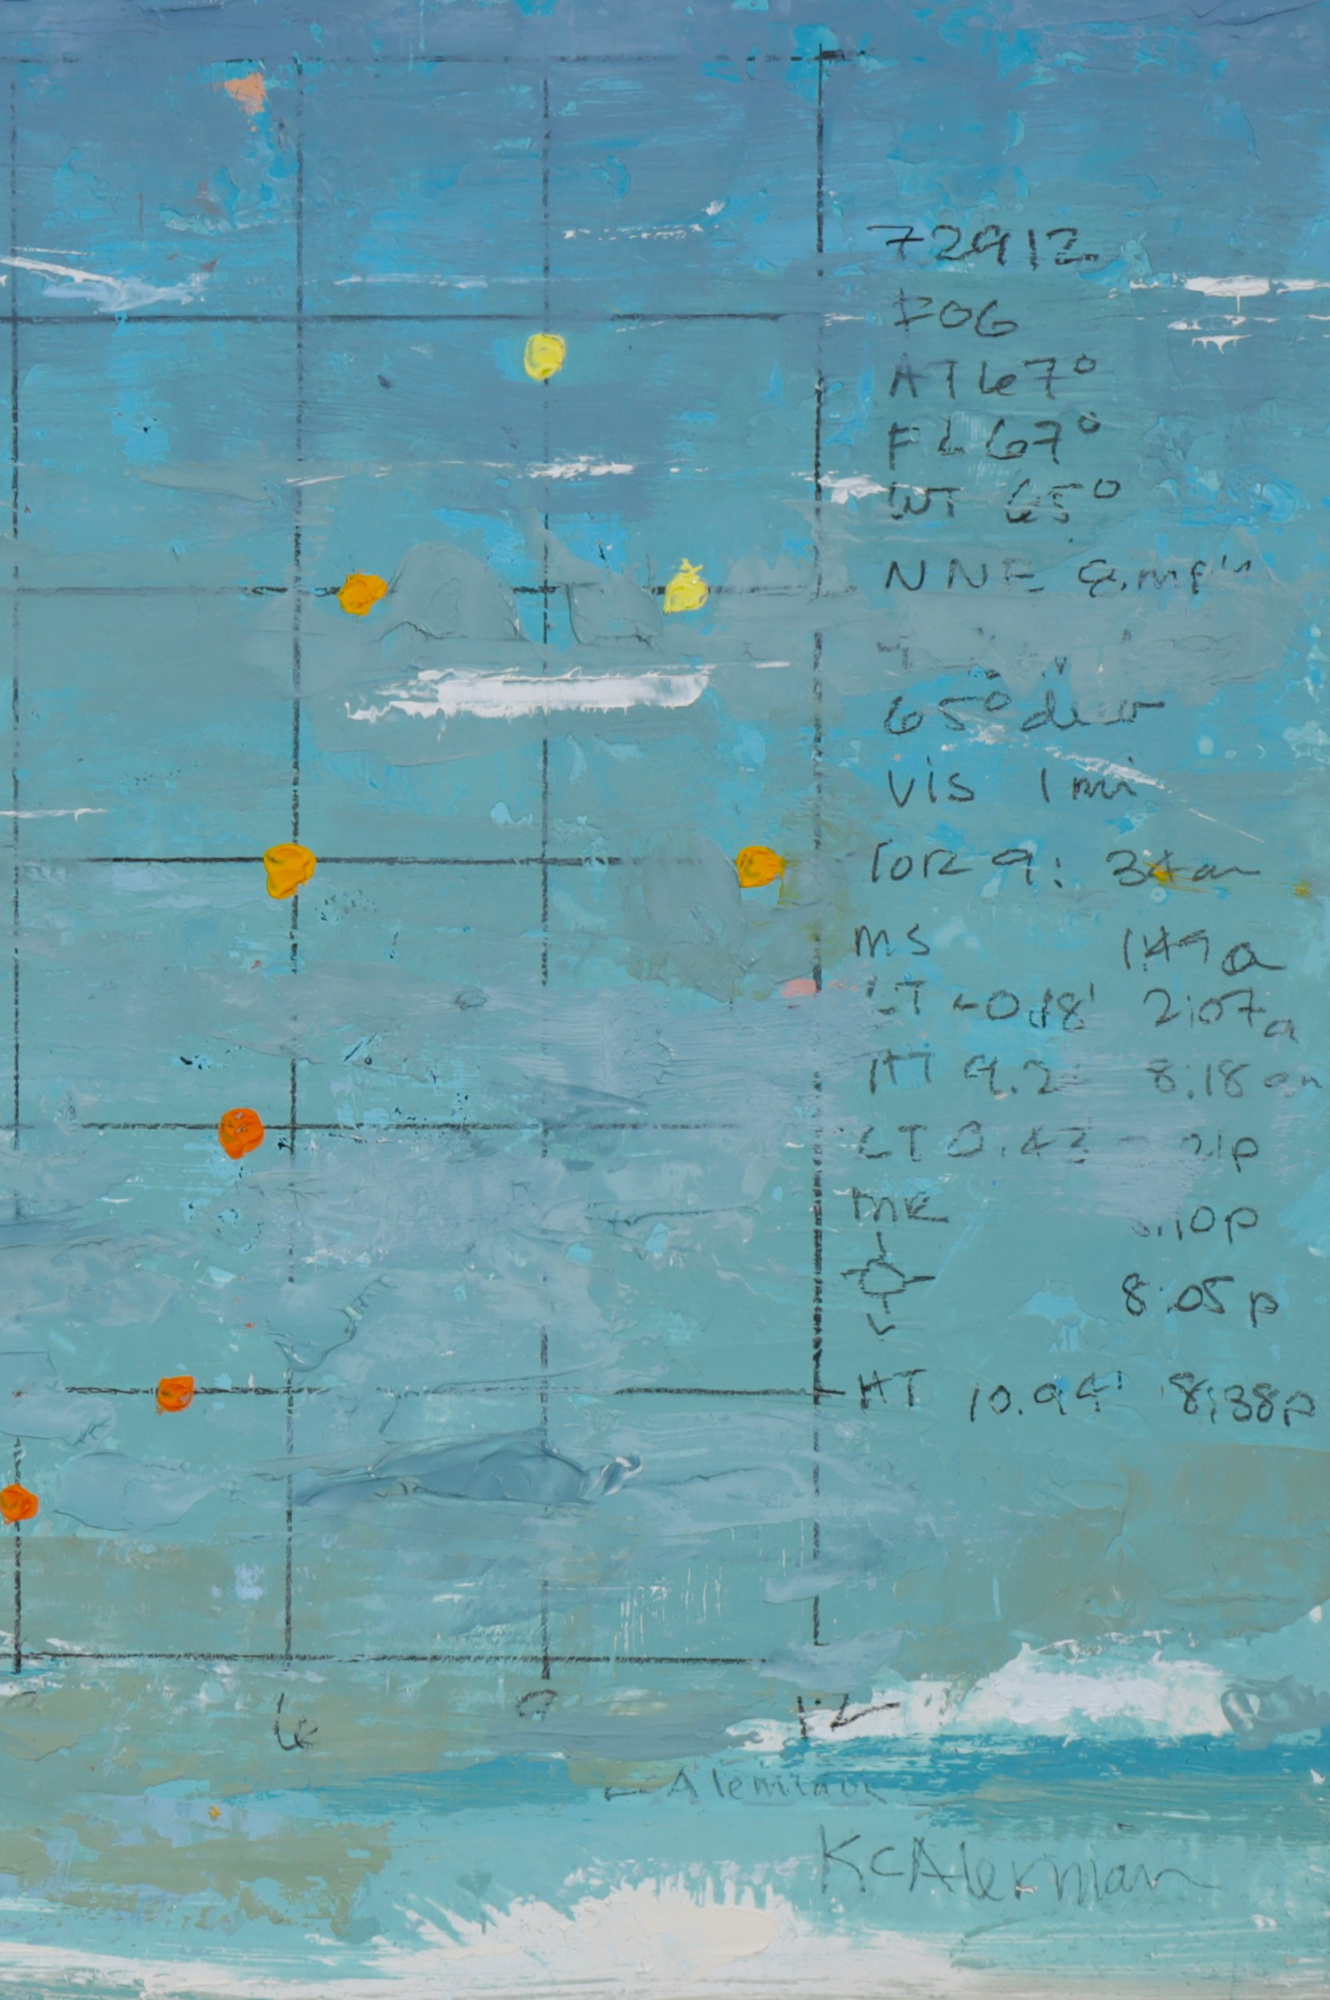 72912
FOG
AT 67°
FL 67°
WT 65°
NNE 8 mph
65° dew
Vis 1 mi
TOR 9: 34 am
MS 1:49 a
LT -0.18' 2:07a
HT 9.2 8:18 am
LT 0.43 21p
MR :10p
8:05 p
HT 10.94' 8:38p
6 9 12
Alerman
KcAlerman